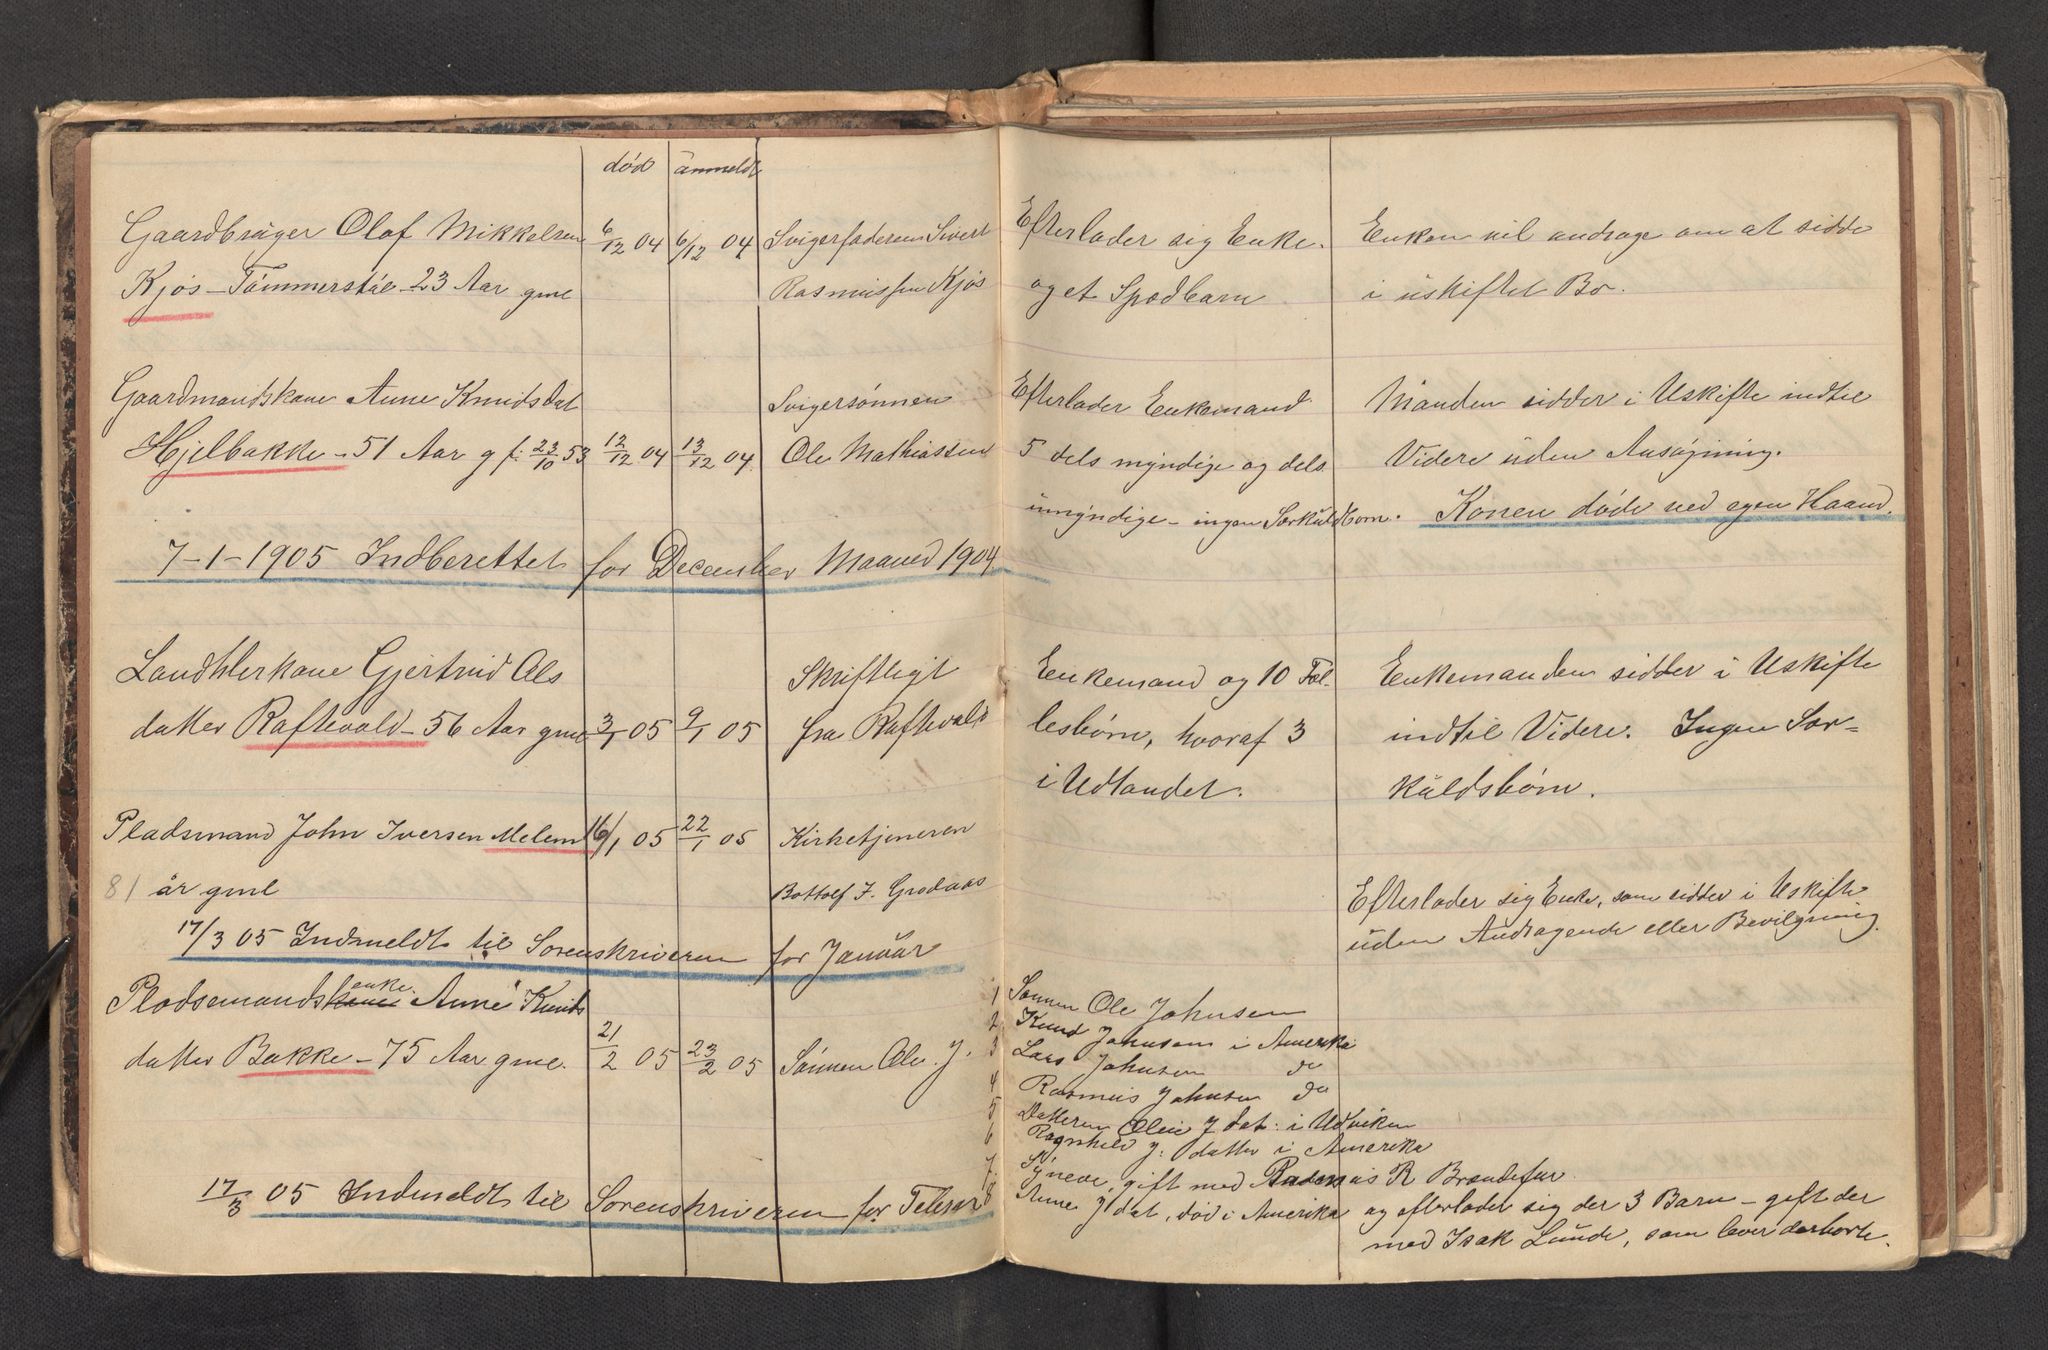 død anmeldt
Gaardbrüger Olaf Mikkelsen 6/12 04 6/12 04 Svigerfaderen Sivert Efterlader sig Enke Enken vil andrage om at sidde
Kjøs - 23 Aar gml Rasmussen Kjøs og et Spædbarn i üskiftet Bo.
Gaardmandskone Anne Knudsdat Svigersønnen Efterlader Enkemand Manden sidder i Uskifte indtil
Hjelbakke - 51 Aar g f: 23/10 53 12/12 04 13/12 04 Ole Mathiassen 5 dels myndige og dels Videre üden Ansøgning.
ümyndige - ingen Særkuldbørn. Konen døde ved egen Haand.
7-1-1905 Indberettet for December Maaned 1904
Landhlerkone Gjertrud Ols Skriftligt Enkemand og 10 Fæl- Enkemanden sidder i Uskifte
datter Raftevold - 56 Aar gml 3/1 05 9/1 05 fra Raftevold lesbørn, hvoraf 3 indtil Videre. Ingen Sær-
i Udlandet. küldsbørn.
Pladsmand John Iversen Melem 16/1 05 22/1 05 Kirketjeneren
81 år gml Bottolf J. Grodaas Efterlader sig Enke, som sidder i Uskifte
17/3 05 Indmeldt til Sorenskriveren for Janüar üden Andragende eller Bevilgning.
Pladsemandskone enke Anne Knuds 1 Sønnen Ole Johnsen
2 Knud Johnsen i Amerika
datter Bakke - 75 Aar gml. 21/2 05 23/2 05 Sønnen Ole J. 3 Lars Johnsen do
4 Rasmus Johnsen do
5 Datteren Oleie J dat: i Udviken
6 Ragnhild J: datter i Amerika
7. Synneve, gift med Rasmus R Brændefur
17/3 05 Indmeldt til Sorenskriveren for Febr 8 Anne J dat, død i Amerika og efterlader sig der 3 Barn - gift der
med Isak Lunde, som lever derborte.